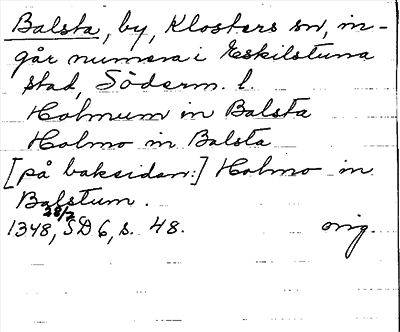 Balsta, by, Klosters sn, in-
går numera i Eskilstuna
stad, Söderm. l.
Holmum in Balsta
Holmo in Balsta
[på baksidan:] Holmo in
Balstum.
28/2
1348, SD 6, s. 48. orig.